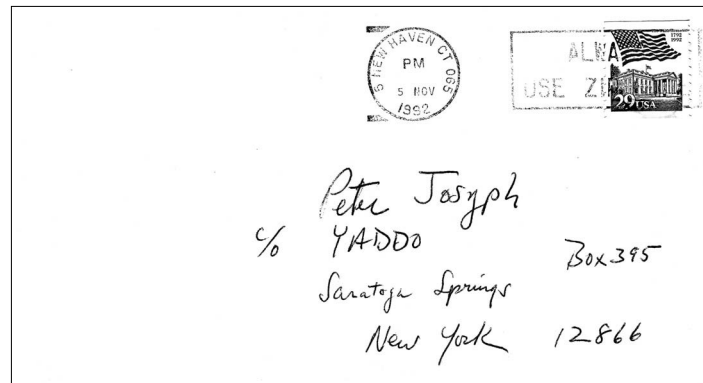 5 NEW HAVEN CT 065
PM
5 NOV
1992
ALWA
USE ZI
1792
1992
29 USA
Peter Josyph
c/o YADDO
Box 395
Saratoga Springs
New York 12866